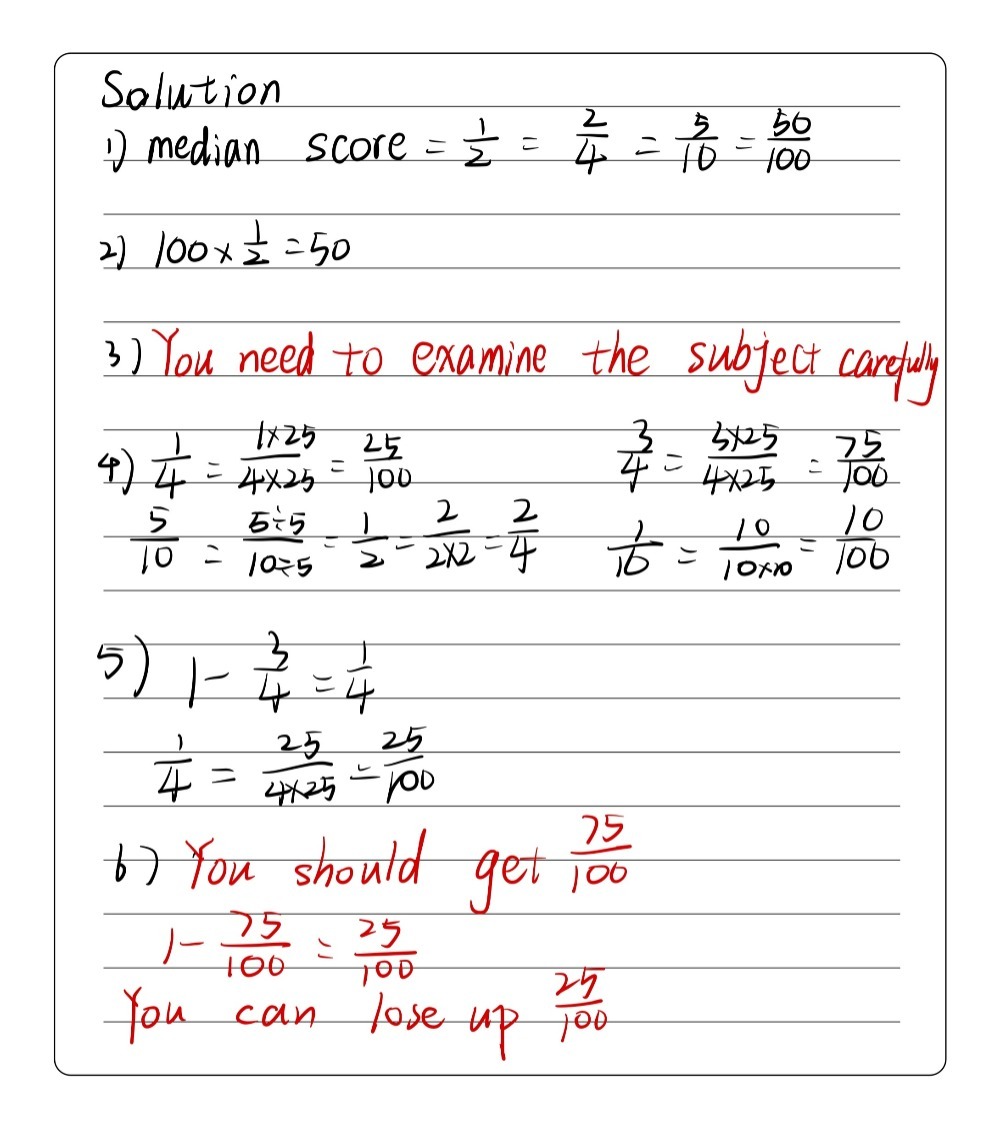 Solution
1) median score = 1/2 = 2/4 = 5/10 = 50/100
2) 100 × 1/2 = 50
3) You need to examine the subject carefully
4) 1/4 = 1×25/4×25 = 25/100 3/4 = 3×25/4×25 = 75/100
5/10 = 5÷5/10÷5 = 1/2 = 2/2×2 = 2/4 1/10 = 10/10×10 = 10/100
5) 1 - 3/4 = 1/4
1/4 = 25/4×25 = 25/100
6) You should get 75/100
1 - 75/100 = 25/100
You can lose up 25/100